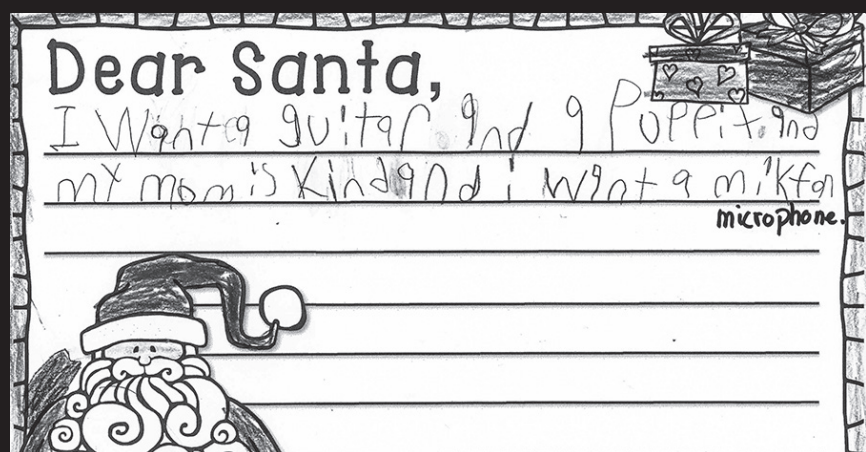 Dear Santa,
I Want a guitar. and a Puppit. and
my mom is Kind and i want a mikfon
microphone.